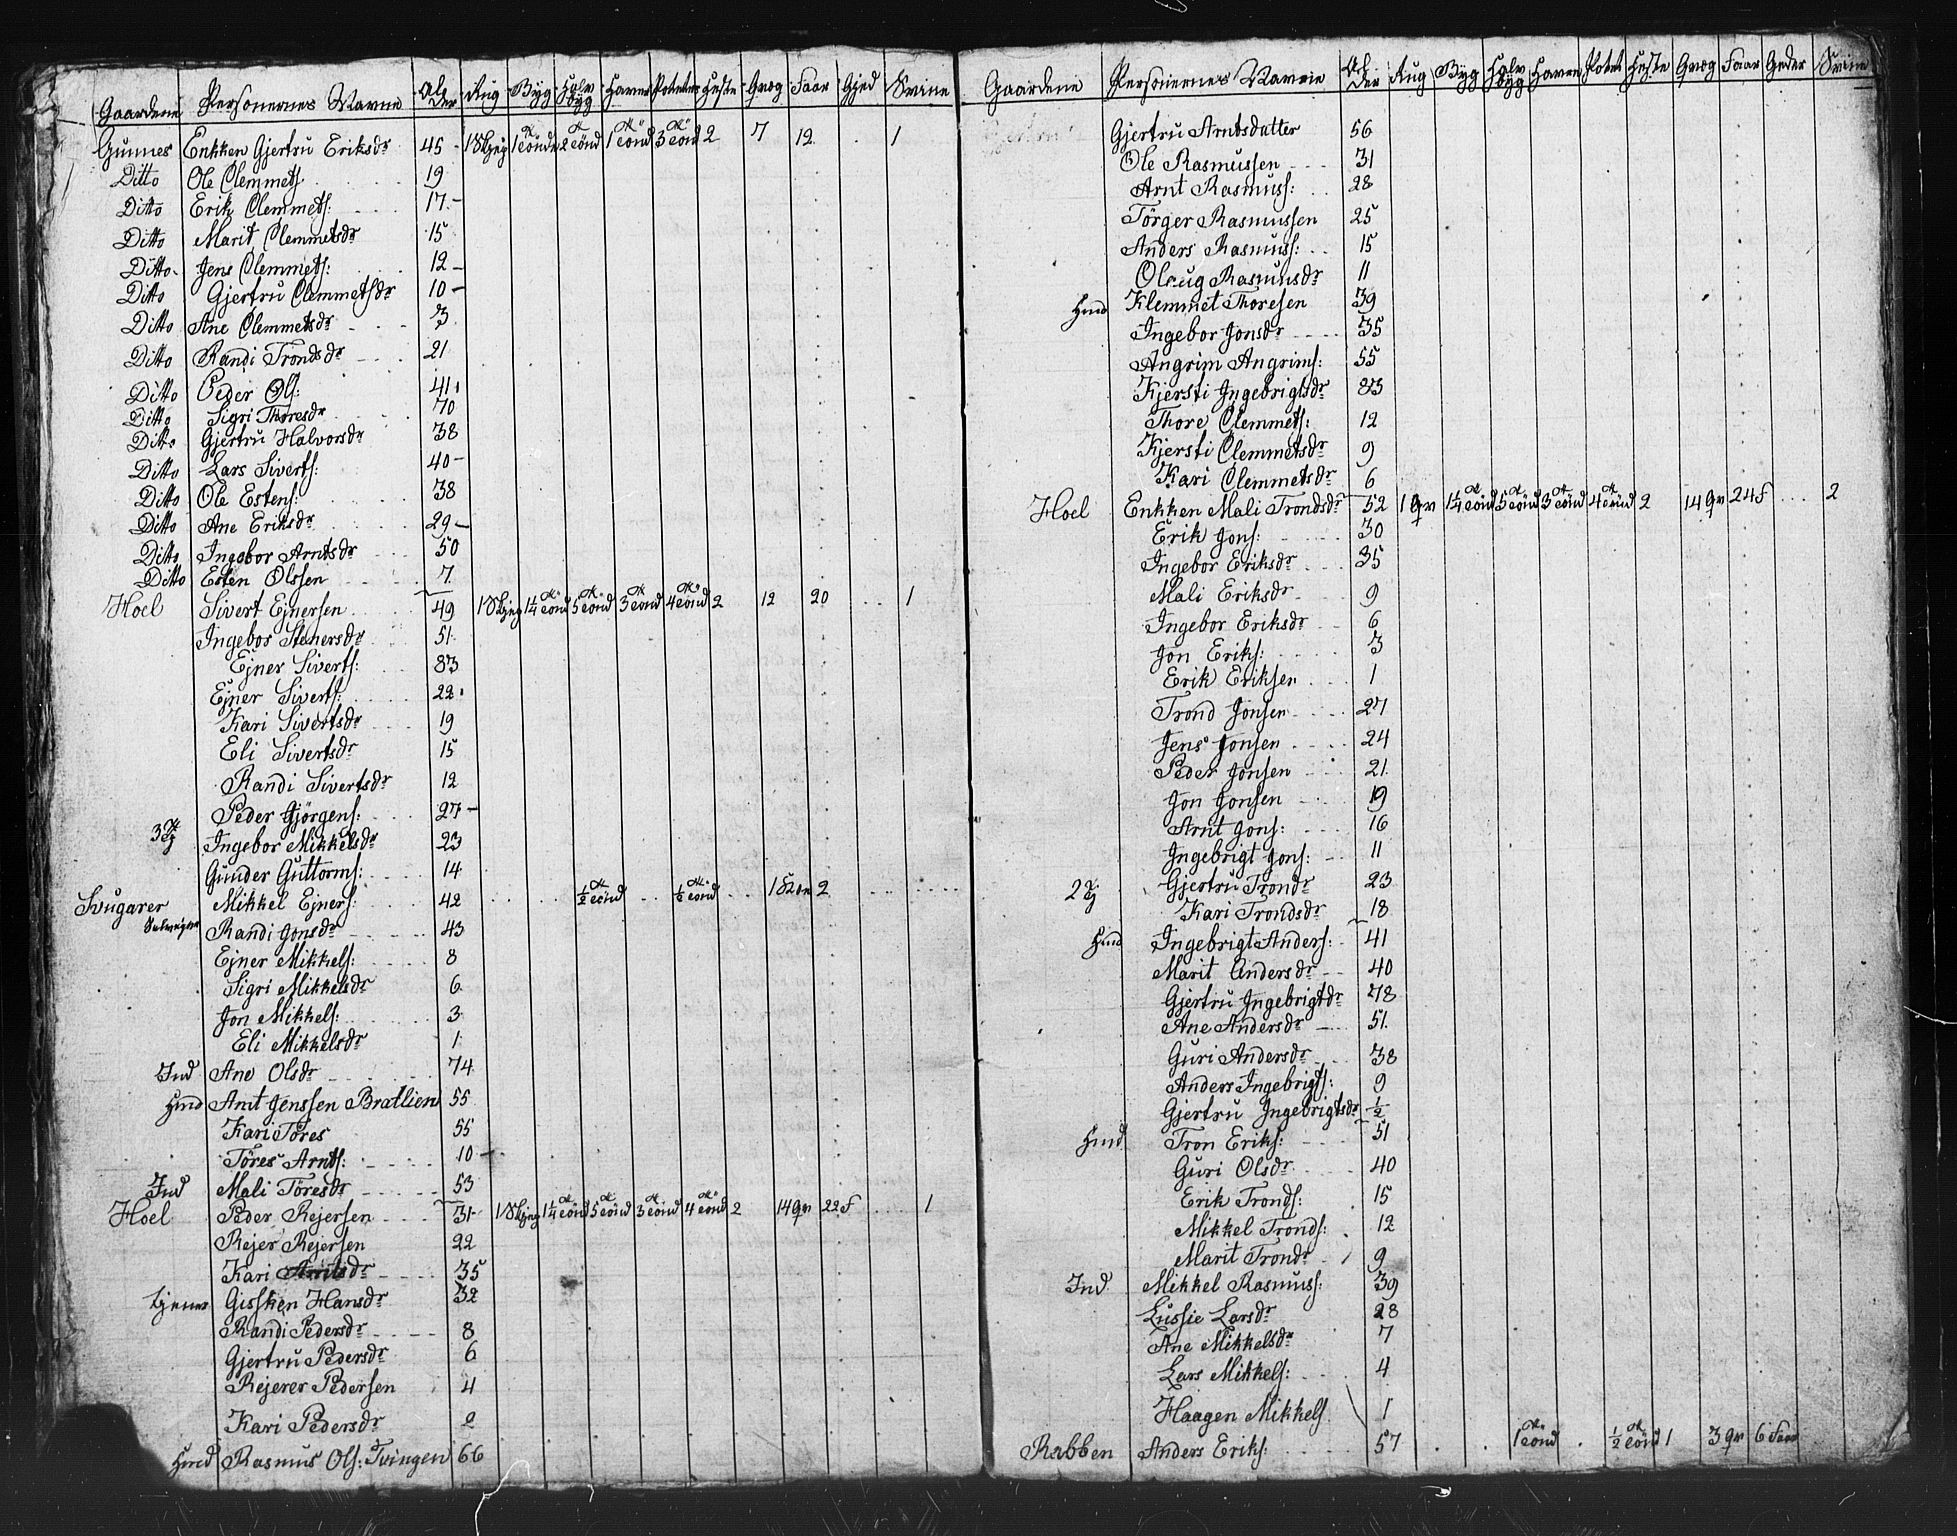 Gaardene Personernes Navne Alder Rug Byg Holv byg Haver Poteter Heste Qvæg Faar Gjed Svine
Gunnes Enkken Gjertru Eriksdr 45 1 Skjep 1 tönde 2 tönd 1 tönd 3 tönd 2 7 12 1
Ditto Ole Clemmets 19
Ditto Erik Clemmets: 17
Ditto Marit Clemmetsdr 15
Ditto Jens Clemmets: 12
Ditto Gjertru Clemmetsdr 10
Ditto Ane Clemmetsdr 3
Ditto Randi Trondsdr 21
Ditto Peder Ols: 41
Ditto Sigri Thoresdr 70
Ditto Gjertru Halvorsdr 38
Ditto Lars Siverts: 40
Ditto Ole Estens: 38
Ditto Ane Eriksdr 29
Ditto Ingebor Arntsdr 50
Ditto Esten Olssen 7
Hoel Sivert Ejnersen 49 1 Skjep 1¼ tönd 5 tönd 3 tönd 4 tönd 2 12 20 1
Ingebor Stenersdr 51
Ejner Siverts: 83
Ejner Siverts: 22
Kari Sivertsdr 19
Eli Sivertsdr 15
Randi Sivertsdr 12
Peder Gjörgens: 27
3 Tj Ingebor Mikkelsdr 23
Gunder Guttorms: 14
Svugarer Mikkel Ejners: 42 ½ tönd ½ tönd 2
Randi Jonsdr 43
Ejner Mikkels: 8
Sigri Mikkelsdr 6
Jon Mikkels: 3
Eli Mikkelsdr 1
Ind Ane Olsdr 74
Hmd Arnt Jenssen Brætlien 55
Kari Töres 55
Töres Arnts: 10
Ind Mali Töresdr 53
Hoel Peder Rejersen 31 1 Skjep 1¼ tönd 5 tönd 3 tönd 4 tönd 2 14 qv 22 f 1
Rejer Rejersen 22
Kari Arntsdr 35
tjener Gissken Hansdr 32
Randi Pedersdr 8
Gjertru Pedersdr 6
Rejerer Pedersen 4
Kari Pedersdr 2
Hmd Rasmus Ols: Tvingen 66
Gaardene Personernes Navne Alder Rug Byg Holv byg Haver Potet Heste Qvæg Faar Geder Svine
Gjertru Arntsdatter 56
Ole Rasmussen 31
Arnt Rasmuss: 28
Törger Rasmussen 25
Anders Rasmuss: 15
Olaug Rasmusdr 11
Hmd Klemmet Thoresen 39
Ingebor Jonsdr 35
Angrim Angrims: 55
Kjersti Ingebrigtsdr 83
Thore Clemmets: 12
Kjersti Clemmetsdr 9
Kari Clemmetsdr 6
Hoel Enkken Mali Trondsdr 52 1 qv 1¼ tönd 5 tönd 3 tönd 4 tönd 2 14 qv 24 f 2
Erik Jons: 30
Ingebor Eriksdr 35
Mali Eriksdr 9
Ingebor Eriksdr 6
Jon Eriks: 3
Erik Eriksen 1
Trond Jonsen 27
Jens Jonsen 24
Peder Jonsen 21
Jon Jonsen 19
Arnt Jons: 16
Ingebrigt Jons: 11
2 Tj Gjertru Trondr 23
Kari Trondsdr 18
Hmd Ingebrigt Anders: 41
Marit Andersdr 40
Gjertru Ingebrigtdr 78
Ane Andersdr 51
Guri Andersdr 38
Anders Ingebrigts: 9
Gjertru Ingebrigtsdr ½
Hmd Tron Eriks: 51
Guri Olsdr 40
Erik Tronds: 15
Mikkel Tronds: 12
Marit Trondr 9
Ind Mikkel Rasmuss: 39
Lussie Larsdr 28
Ane Mikkelsdr 7
Lars Mikkels: 4
Haagen Mikkels 1
Rabben Anders Eriks: 57 1 tönd ½ tönd 1 3 qv 6 Faar